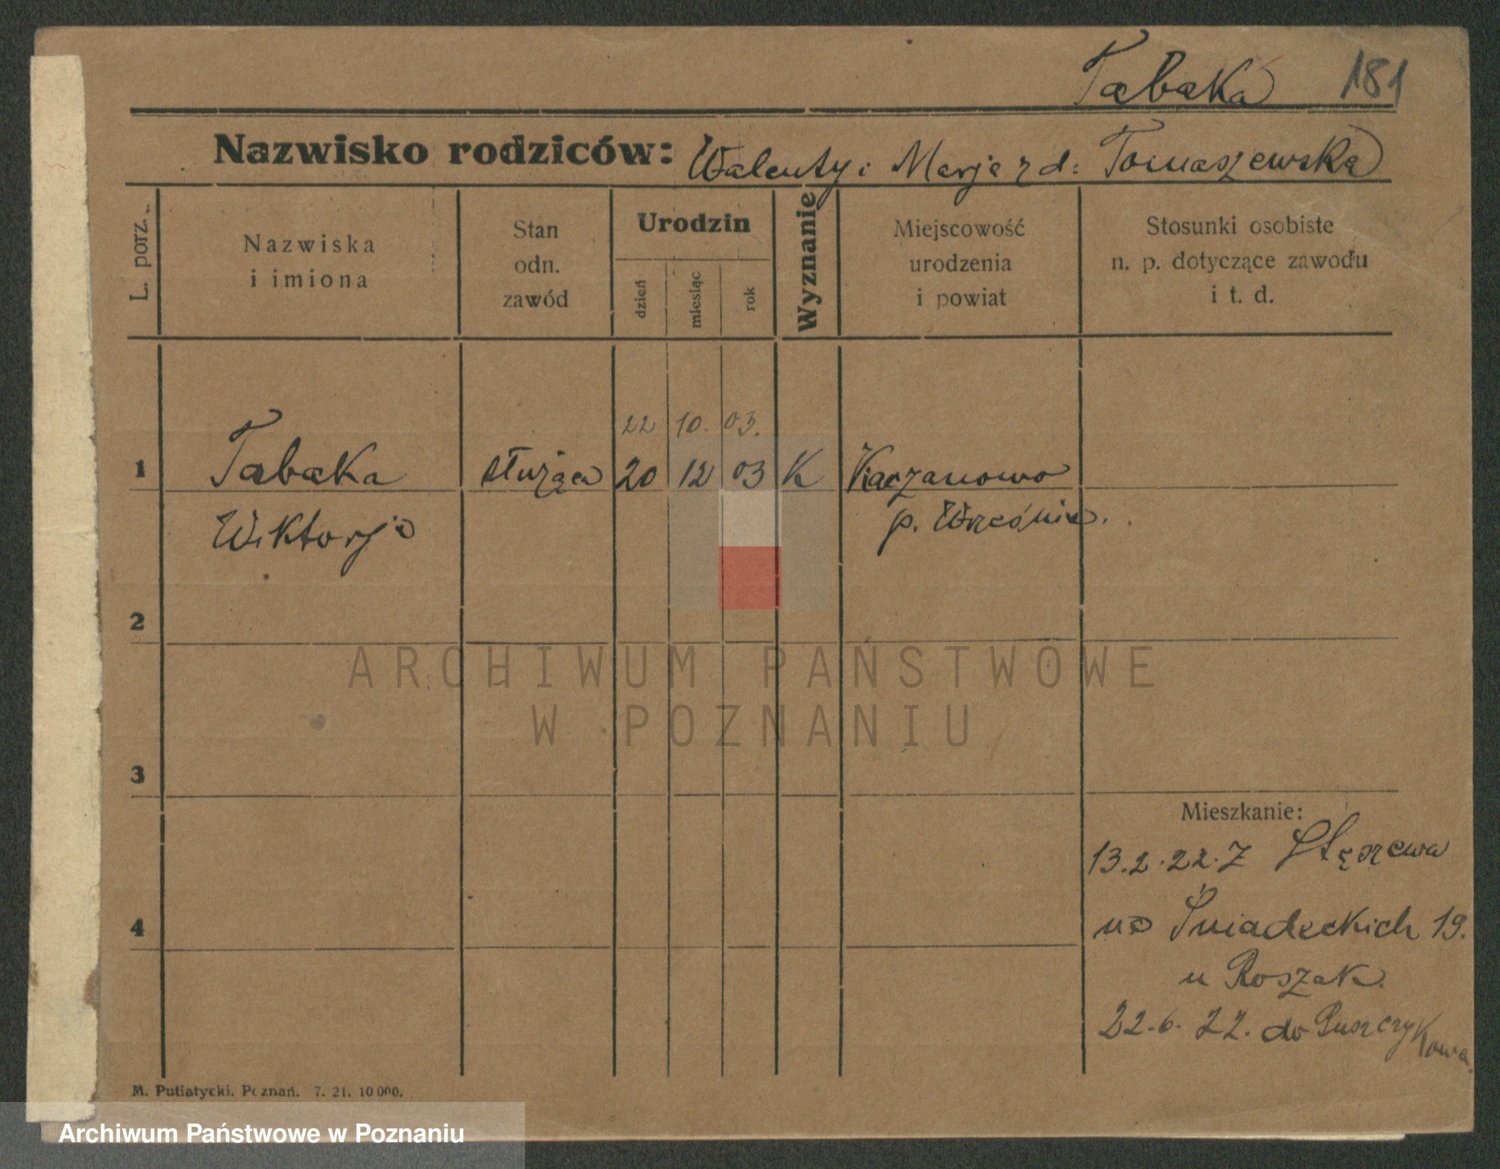 Tabaka 181
Nazwisko rodziców: Walenty i Marja z d: Tomaszewska
L. porz.
Nazwiska
i imiona
Stan
odn.
zawód
Urodzin
dzień
miesiąc
rok
Wyznanie
Miejscowość
urodzenia
i powiat
Stosunki osobiste
n. p. dotyczące zawodu
i t. d.
22 10. 03.
1 Tabaka służąca 20 12 03 K Kaczanowo
Wiktorja p. Września.
2
ARCHIWUM PAŃSTWOWE
W POZNANIU
3
Mieszkanie:
13.2.22. z Stęszewa
4 na Śniadeckich 19.
u Roszak.
22.6.22. do Puszczykowa.
M. Putiatycki. Poznań. 7. 21. 10 000.
Archiwum Państwowe w Poznaniu